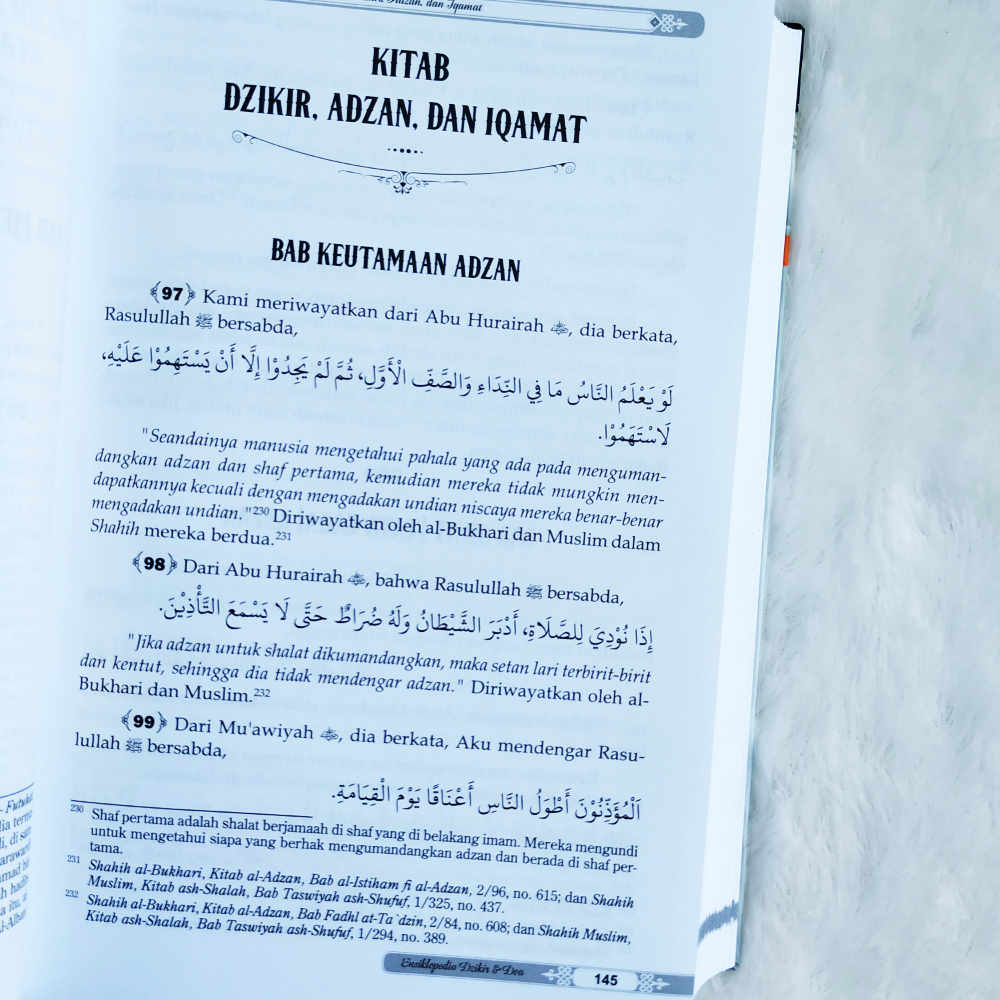 Adzan, dan Iqamat
KITAB
DZIKIR, ADZAN, DAN IQAMAT
BAB KEUTAMAAN ADZAN
﴾97﴿ Kami meriwayatkan dari Abu Hurairah, dia berkata,
Rasulullah ﷺ bersabda,
لَوْ يَعْلَمُ النَّاسُ مَا فِي النِّدَاءِ وَالصَّفِّ الْأَوَّلِ، ثُمَّ لَمْ يَجِدُوْا إِلَّا أَنْ يَسْتَهِمُوْا عَلَيْهِ،
لَاسْتَهَمُوْا.
"Seandainya manusia mengetahui pahala yang ada pada menguman-
dangkan adzan dan shaf pertama, kemudian mereka tidak mungkin men-
dapatkannya kecuali dengan mengadakan undian niscaya mereka benar-benar
mengadakan undian."230 Diriwayatkan oleh al-Bukhari dan Muslim dalam
Shahih mereka berdua.231
﴾98﴿ Dari Abu Hurairah, bahwa Rasulullah ﷺ bersabda,
إِذَا نُوْدِيَ لِلصَّلَاةِ، أَدْبَرَ الشَّيْطَانُ وَلَهُ ضُرَاطٌ حَتَّى لَا يَسْمَعَ التَّأْذِيْنَ.
"Jika adzan untuk shalat dikumandangkan, maka setan lari terbirit-birit
dan kentut, sehingga dia tidak mendengar adzan." Diriwayatkan oleh al-
Bukhari dan Muslim.232
﴾99﴿ Dari Mu'awiyah, dia berkata, Aku mendengar Rasu-
lullah ﷺ bersabda,
اَلْمُؤَذِّنُوْنَ أَطْوَلُ النَّاسِ أَعْنَاقًا يَوْمَ الْقِيَامَةِ.
230 Shaf pertama adalah shalat berjamaah di shaf yang di belakang imam. Mereka mengundi
untuk mengetahui siapa yang berhak mengumandangkan adzan dan berada di shaf per-
tama.
231 Shahih al-Bukhari, Kitab al-Adzan, Bab al-Istiham fi al-Adzan, 2/96, no. 615; dan Shahih
Muslim, Kitab ash-Shalah, Bab Taswiyah ash-Shufuf, 1/325, no. 437.
232 Shahih al-Bukhari, Kitab al-Adzan, Bab Fadhl at-Ta`dzin, 2/84, no. 608; dan Shahih Muslim,
Kitab ash-Shalah, Bab Taswiyah ash-Shufuf, 1/294, no. 389.
Ensiklopedia Dzikir & Doa 145